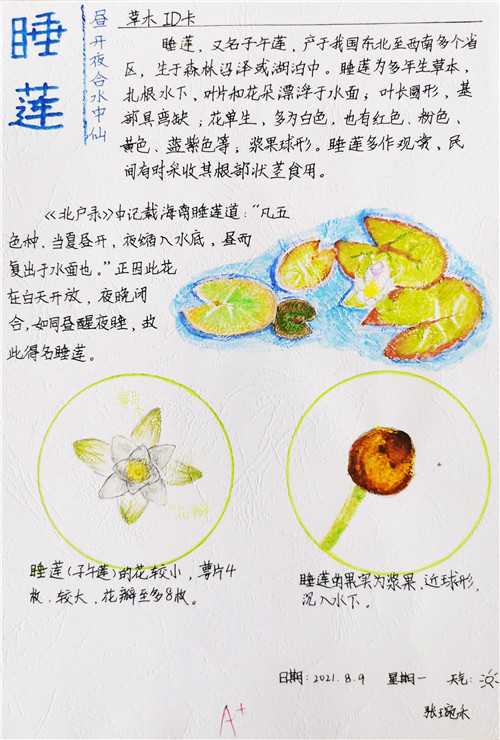 睡莲
昼开夜合水中仙
草木ID卡
睡莲，又名子午莲，产于我国东北至西南多个省
区，生于森林沼泽或湖泊中。睡莲为多年生草本，
扎根水下，叶片和花朵漂浮于水面；叶长圆形，基
部具弯缺；花单生，多为白色，也有红色、粉色、
黄色、蓝紫色等，浆果球形。睡莲多作观赏，民
间有时采收其根部状茎食用。
《北户录》中记载海南睡莲道：“凡五
色种，当夏昼开，夜缩入水底，昼而
复出于水面也。”正因此花
在白天开放，夜晚闭
合，如同昼醒夜睡，故
此得名睡莲。
萼片
花瓣
睡莲(子午莲)的花较小，萼片4
枚、较大，花瓣至多8枚。
睡莲的果实为浆果，近球形，
沉入水下。
日期：2021.8.9 星期一 天气：
张琬木
A+